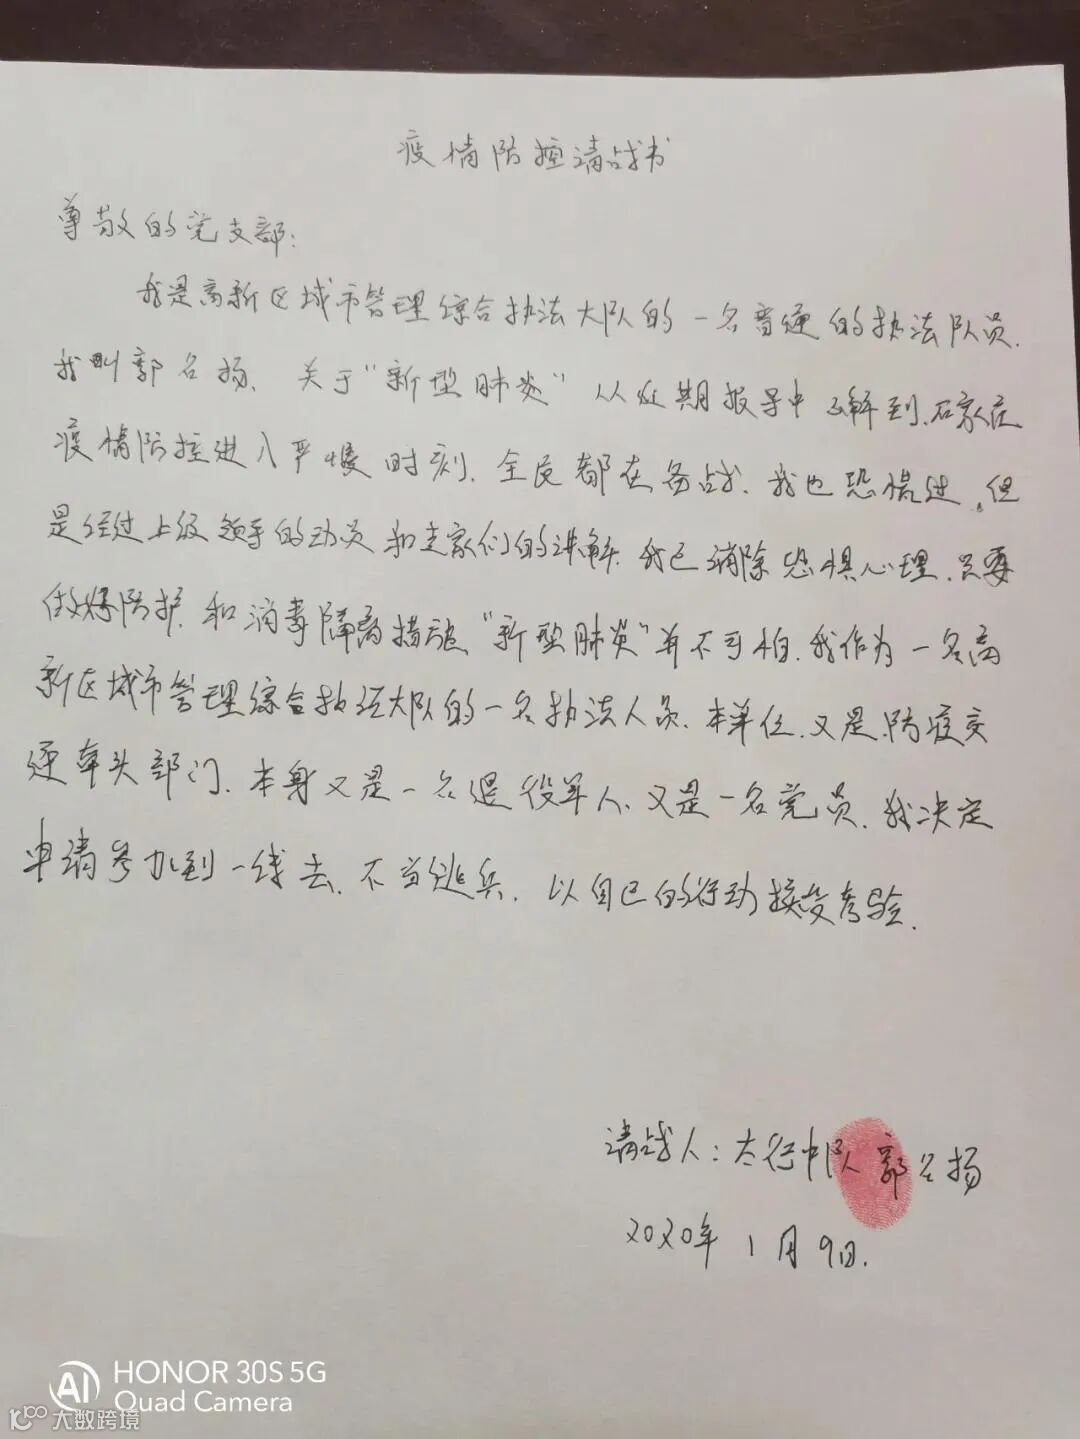 疫情防控请战书
尊敬的党支部:
我是高新区城市管理综合执法大队的一名普通的执法队员.
我叫郭名扬、关于“新型肺炎”从近期报导中了解到.石家庄
疫情防控进入严峻时刻.全民都在备战.我也恐慌过.但
是经过上级领导的动员和专家们的讲解.我已消除恐惧心理.只要
做好防护.和消毒隔离措施“新型肺炎”并不可怕.我作为一名高
新区城市管理综合执法大队的一名执法人员.本单位.又是.防疫交
通牵头部门.本身又是一名退役军人、又是一名党员.我决定
申请参加到一线去、不当逃兵.以自己的行动接受考验.
请战人:太行中队 郭名扬
2020年1月9日.
AI HONOR 30S 5G
Quad Camera
大数跨境